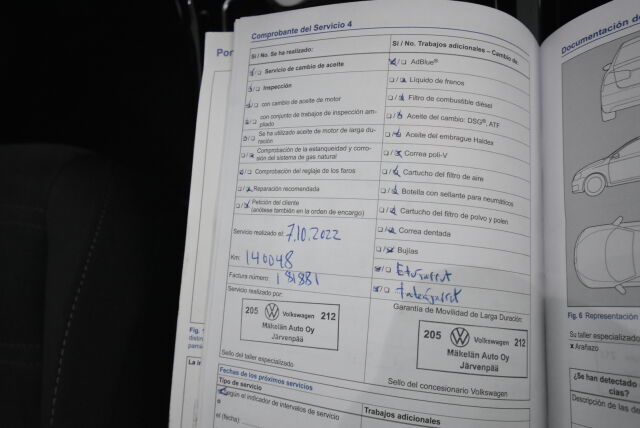 Comprobante del Servicio 4
Sí / No. Se ha realizado:
Servicio de cambio de aceite
Inspección
con cambio de aceite de motor
con conjunto de trabajos de inspección am-
pliado
Se ha utilizado aceite de motor de larga du-
ración
Comprobación de la estanqueidad y corro-
sión del sistema de gas natural
Comprobación del reglaje de los faros
Reparación recomendada
Petición del cliente
(anótese también en la orden de encargo)
Servicio realizado el: 7.10.2022
Km: 140048
Factura número: 181881
Servicio realizado por:
205 Volkswagen 212
Mäkelän Auto Oy
Järvenpää
Sello del taller especializado
Fechas de los próximos servicios
Tipo de servicio
Según el indicador de intervalos de servicio
el (fecha)
Sí / No. Trabajos adicionales – Cambio de:
AdBlue®
Líquido de frenos
Filtro de combustible diésel
Aceite del cambio: DSG®, ATF
Aceite del embrague Haldex
Correa poli-V
Cartucho del filtro de aire
Botella con sellante para neumáticos
Cartucho del filtro de polvo y polen
Correa dentada
Bujías
Garantía de Movilidad de Larga Duración:
205 Volkswagen 212
Mäkelän Auto Oy
Järvenpää
Sello del concesionario Volkswagen
Trabajos adicionales
Documentación de
Fig. 6 Representación
Su taller especializado
x Arañazo
¿Se han detectado
cias?
Descripción de las